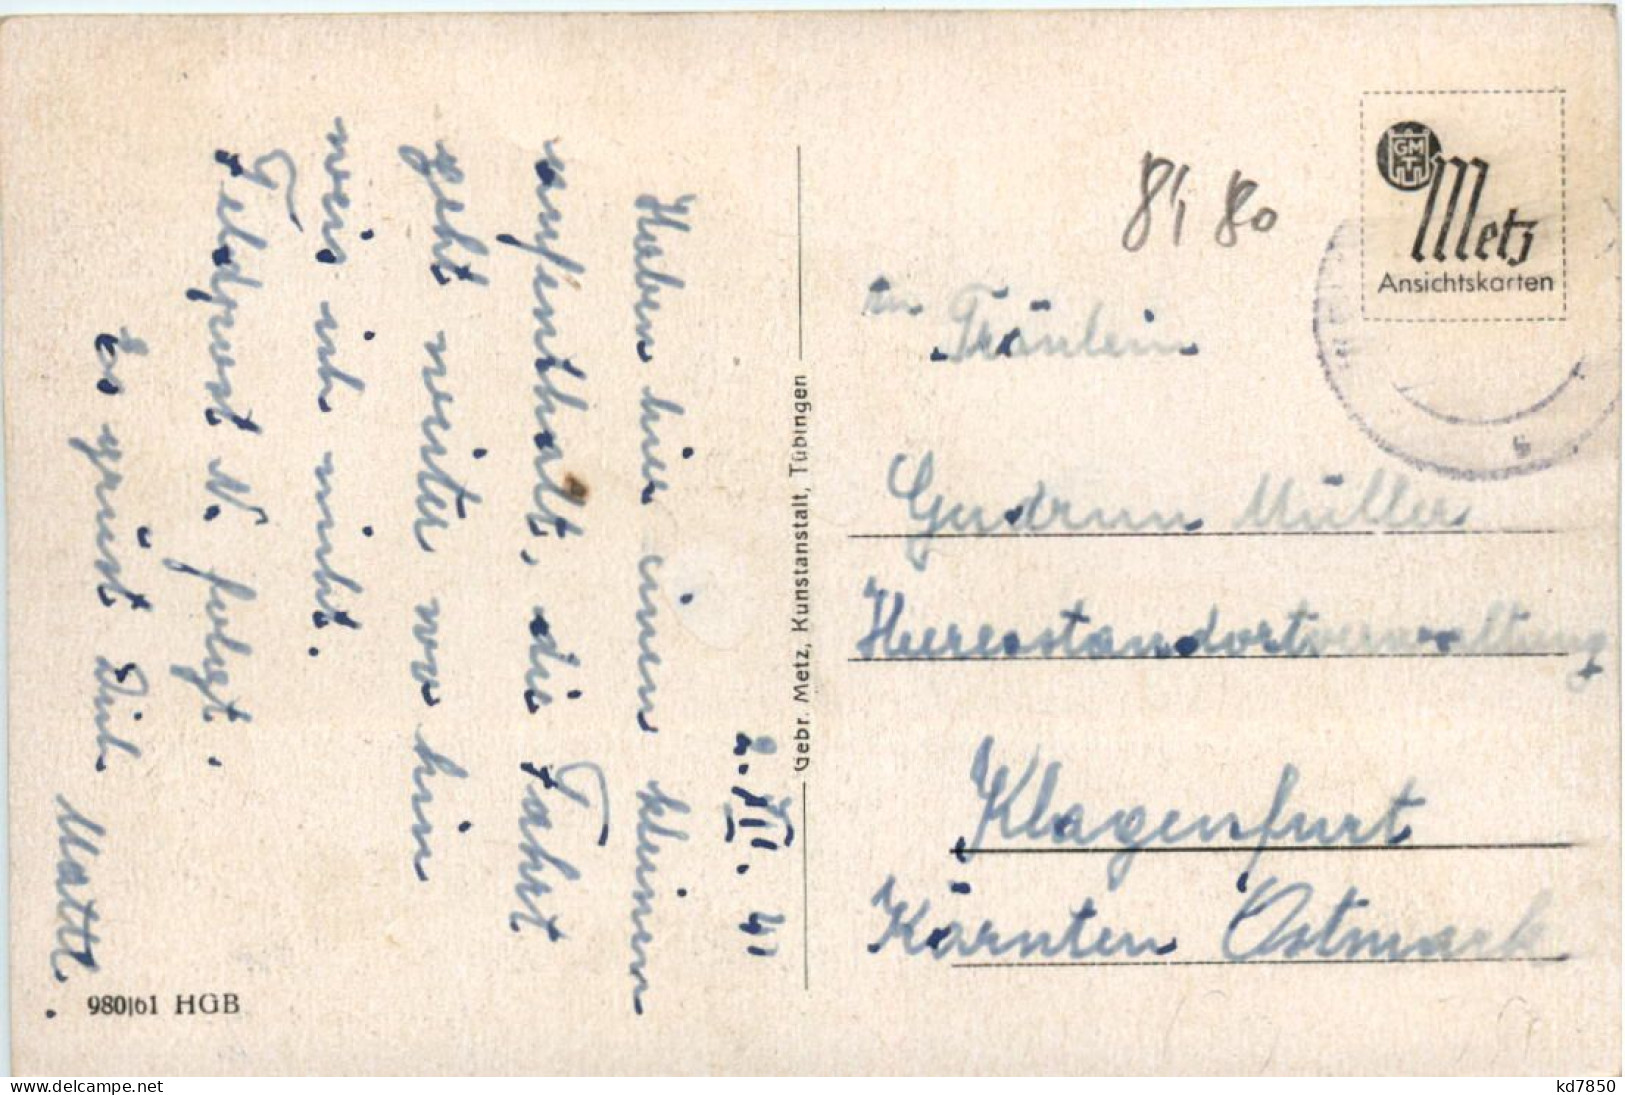 2. XII. 41
Haben hier einen kleinen
aufenthalt, die Fahrt
geht weiter wo hin
weis ich nicht.
Feldpost N. folgt.
Es grüst Dich
Mattl.
980/61 HGB
Gebr. Metz, Kunstanstalt, Tübingen
GMT
Metz
Ansichtskarten
81 80
an Fräulein
Gudrun Müller
Heeresstandortverwaltung
Klagenfurt
Kärnten Ostmark
delcampe.net
kd7850